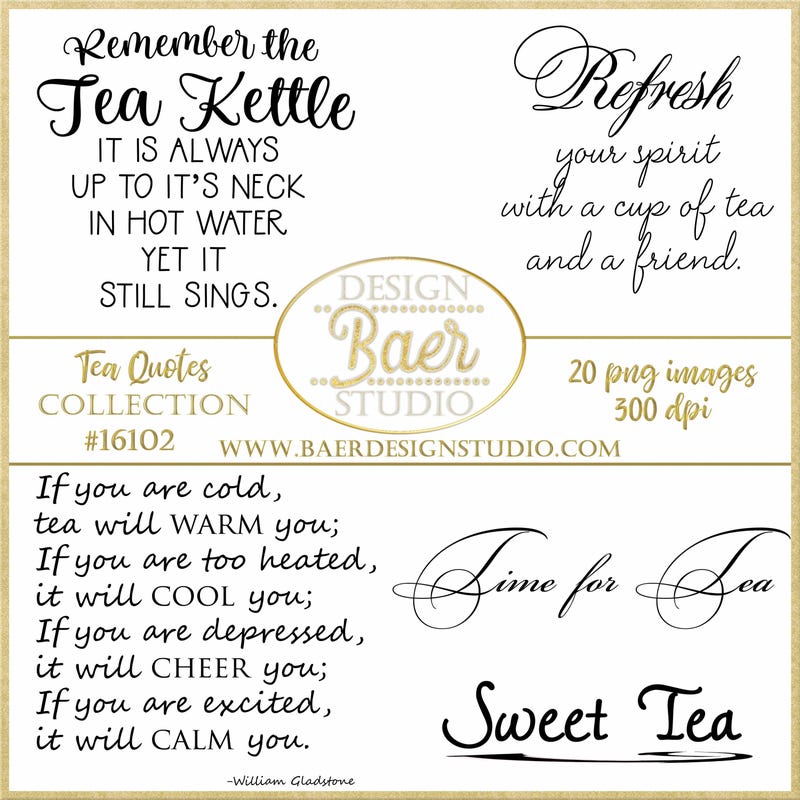 Remember the
Tea Kettle
IT IS ALWAYS
UP TO IT'S NECK
IN HOT WATER
YET IT
STILL SINGS.
Refresh
your spirit
with a cup of tea
and a friend.
DESIGN
Baer
STUDIO
Tea Quotes
COLLECTION
#16102
20 png images
300 dpi
WWW.BAERDESIGNSTUDIO.COM
If you are cold,
tea will WARM you;
If you are too heated,
it will COOL you;
If you are depressed,
it will CHEER you;
If you are excited,
it will CALM you.
-William Gladstone
Time for Tea
Sweet Tea